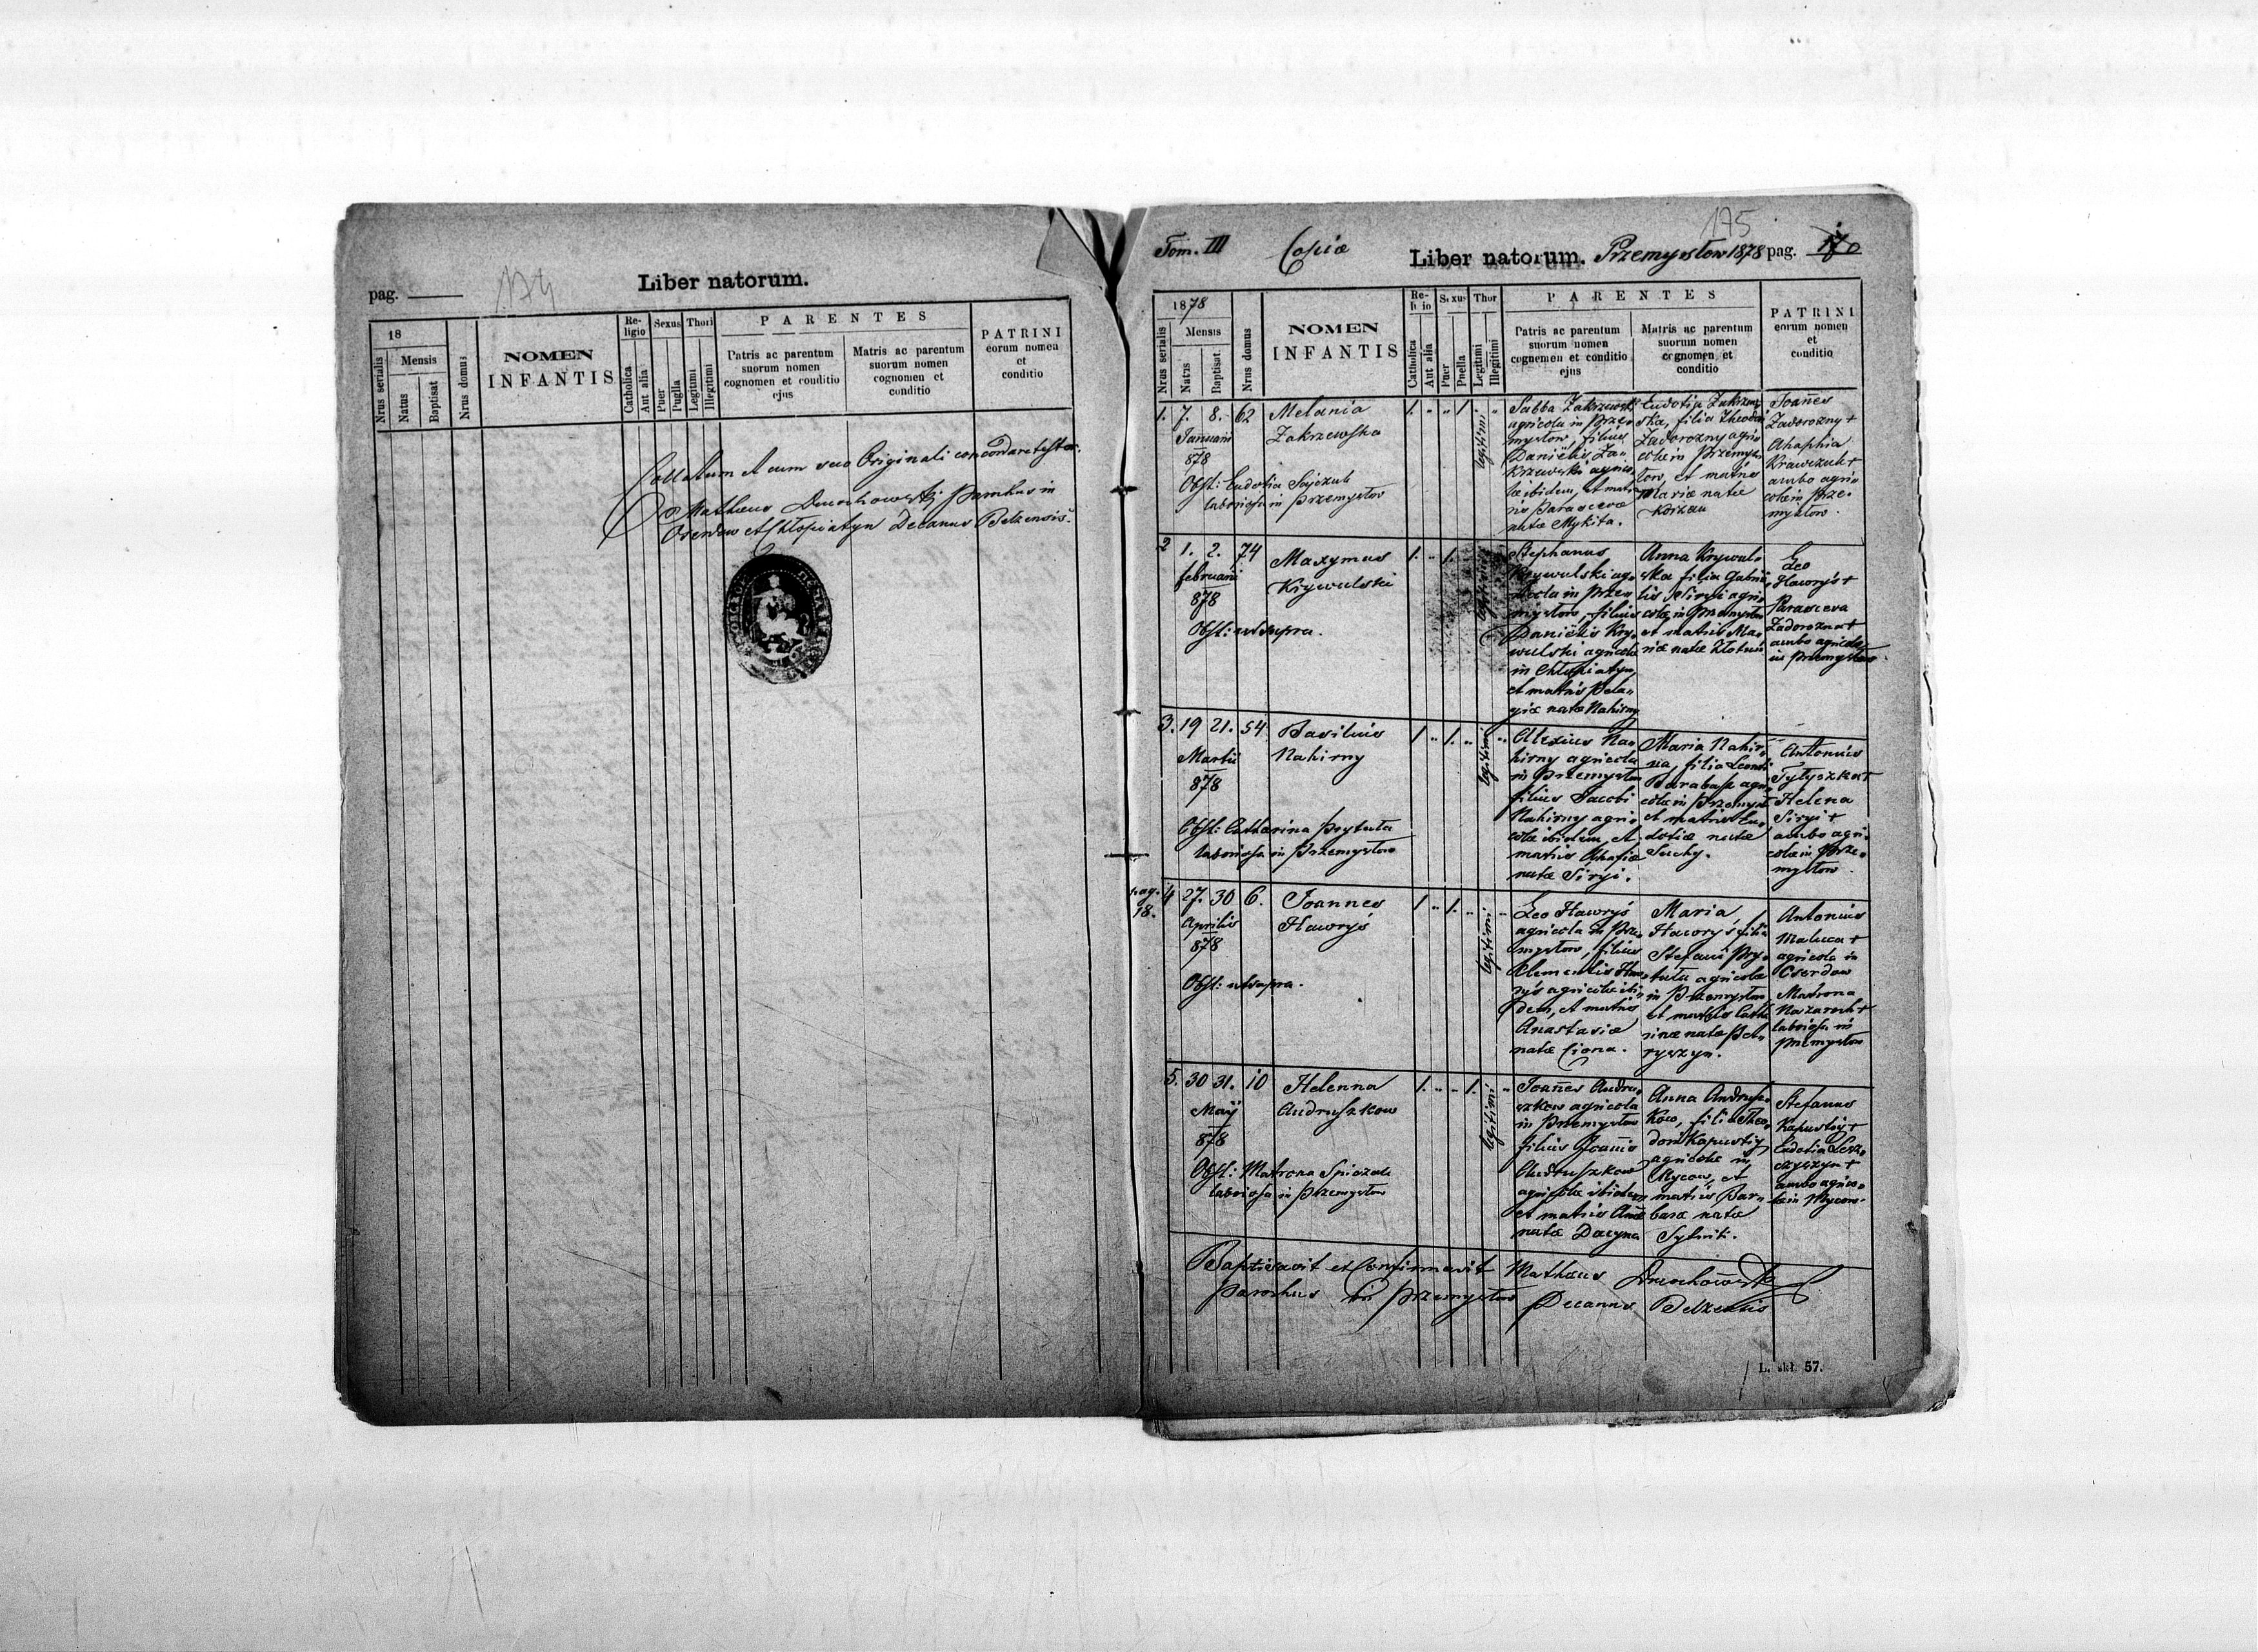 pag.
174
Liber natorum.
18
Mensis
Nrus serialis
Natus
Baptisat
Nrus domus
NOMEN
INFANTIS
Religio
Catholica
Aut alia
Sexus
Puer
Puella
Thori
Legitimi
Illegitimi
PARENTES
Patris ac parentum
suorum nomen
cognomen et conditio
ejus
Matris ac parentum
suorum nomen
cognomen et
conditio
PATRINI
eorum nomen
et
conditio
Collatum et cum suo Originali concordare testor.
Matheus parochus in
et Chłopiatyn Decanus Belzensis.
Tom. III
Copia
Liber natorum. Przemysłow 1878 pag.
175
1878
Mensis
Nrus serialis
Natus
Baptisat.
Nrus domus
NOMEN
INFANTIS
Religio
Catholica
Aut alia
Sexus
Puer
Puella
Thor
Legitimi
Illegitimi
PARENTES
Patris ac parentum
suorum nomen
cognomen et conditio
ejus
Matris ac parentum
suorum nomen
cognomen et
conditio
PATRINI
eorum nomen
et
conditio
1. 7. 8. 62 Melania
Januarii Zakrzewska
878
Obst: Eudotia Sajczuk
laboriosa in Przemysłow
1. " " 1 "
legitimi
Sabba Zakrzewski
agricola in Prze-
mysłow, filius
Daniëlis Za-
krzewski agrico-
læ ibidem, et mat-
ris Parascevæ
natæ Mykita.
Eudotia Zakrzew-
ska, filia Theodori
Zadorozny agri-
colæ in Przemys-
łow, et matris
Mariæ natæ
Joañes
Zadorozny +
Ahaphia
Krawczuk +
ambo agri-
colæ in Prze-
mysłow.
2 1. 2. 74 Maxymus
februarii Krywulski
878
Obst: ut supra.
1. " 1.
Stephanus
Krywulski ag-
ricola in Prze-
mysłow, filius
Daniëlis Kry-
wulski agricolæ
in Chłopiatyn,
et matris Pela-
giæ natæ Nahirny
Anna Krywul-
ska filia Gabrie-
lis Siryi agri-
colæ in Przemysłow
et matris Ma-
riæ natæ
Leo
Hawryś +
Parasceva
Zadorozna +
ambo agricolæ
in Przemysłow.
3. 19 21. 54 Basilius
Martii Nahirny
878
Obst: Catharina Prytuła
laboriosa in Przemysłow
1 " 1. " "
legitimi
Alexius Na-
hirny agricola
in Przemysłow
filius Jacobi
Nahirny agri-
colæ ibidem, et
matris Ahafiæ
natæ Siryi.
Maria Nahir-
na, filia Leonti
Barabasz agri-
colæ in Przemysł
et matris Eu-
dotiæ natæ
Suchy.
Antonius
Tytyszka +
Helena
Siryi +
ambo agri-
colæ in Prze-
mysłow.
pag.
18.
4 27. 30 6. Joannes
Aprilis Hawryś
878
Obst: ut supra.
1 " 1. " "
legitimi
Leo Hawryś
agricola in Prze-
mysłow, filius
Clementis Haw-
ryś agricolæ ibi-
dem, et matris
Anastasiæ
natæ Ciona.
Maria
Hawryś filia
Stefani Pry-
tuła agricolæ
in Przemysłow
et matris Catha-
rinæ natæ Pet-
ryszyn.
Antonius
Maluca +
agricola in
Oserdow
Matrona
Nazaruk +
laboriosa in
Przemysłow
5. 30 31. 10 Helenna
Maij Andruszkow
878
Obst: Matrona Spiczak
laboriosa in Przemysłow
1. " " 1. "
legitimi
Joañes Andru-
szkow agricola
in Przemysłow
filius Joañis
Andruszkow
agricolæ ibidem,
et matris Añæ
natæ Dacyna
Anna Andrusz-
kow, filia Theo-
dori Kapustiy
agricolæ in
Mycow, et
matris Bar-
baræ natæ
Sytnik.
Stefanus
Kapustiy +
Eudotia Lesz-
czyszyn +
ambo agrico-
læ in Mycow.
Baptisavit et Confirmavit Matheus
Parochus in Przemysłow Decanus Belzensis
L. skł. 57.